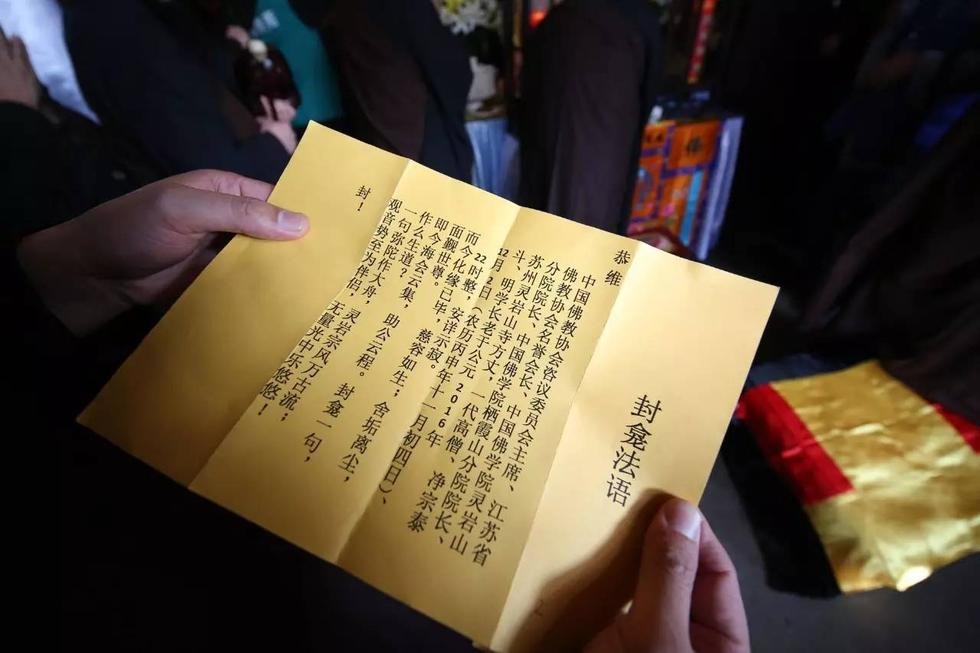 封龛法语
恭维
中国佛教协会咨议委员会主席、江苏省
佛教协会名誉会长、中国佛学院灵岩山
分院院长、中国佛学院栖霞山分院院长、
苏州灵岩山寺方丈,一代高僧、净宗泰
斗、明学长老于公元2016年
12月2日(农历丙申年十一月初四日)、
22时整,安详示寂。
而今化缘已毕,慈容如生;舍垢离尘,
面觐世尊。
即今海会云集,助公云程。封龛一句,
作么生道?
一句弥陀作大舟,灵岩宗风万古流;
观音势至为伴侣,无量光中乐悠悠!
封!